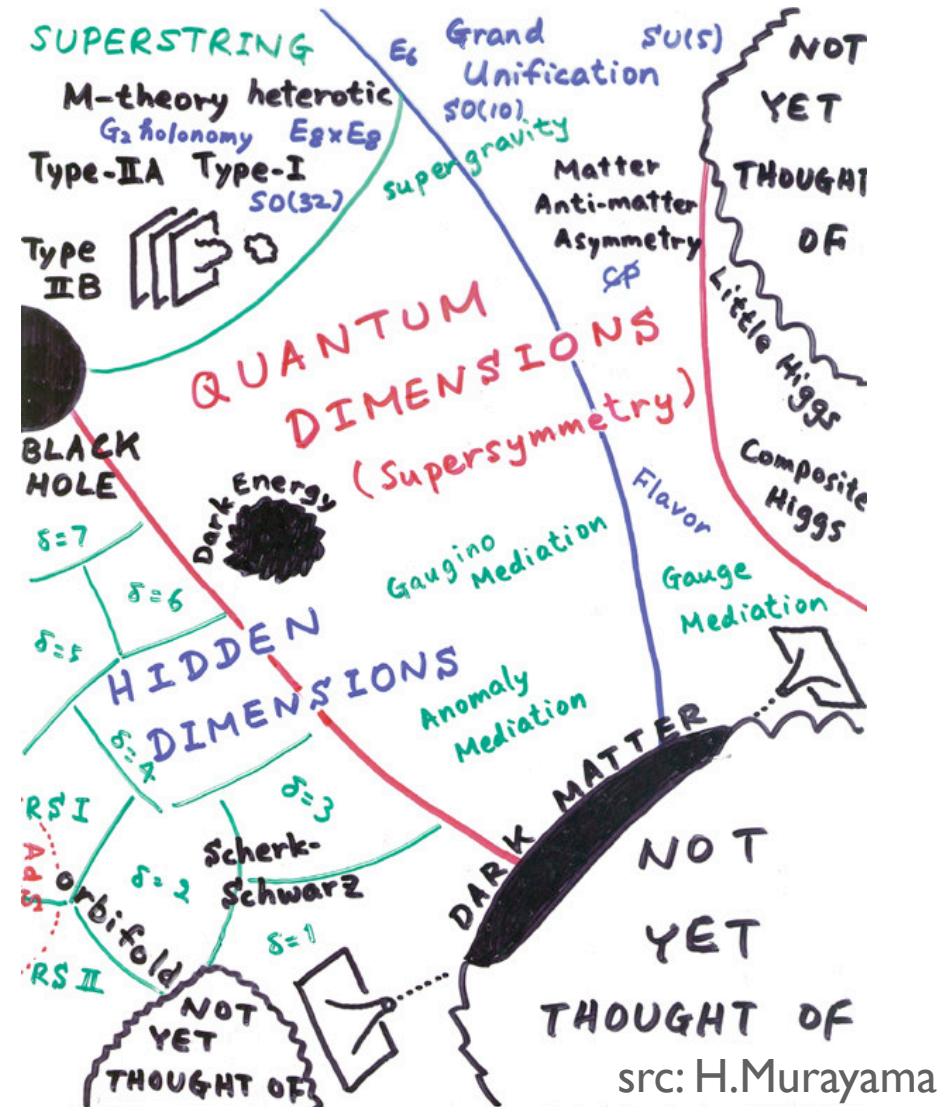 SUPERSTRING
M-theory heterotic
G₂ holonomy E₈×E₈
Type-IIA Type-I
SO(32)
Type
IIB
E₆
Grand
Unification
SU(5)
SO(10)
supergravity
Matter
Anti-matter
Asymmetry
CP
NOT
YET
THOUGHT
OF
Little Higgs
Composite
Higgs
QUANTUM
DIMENSIONS
(Supersymmetry)
BLACK
HOLE
Dark Energy
Flavor
Gaugino
Mediation
Gauge
Mediation
δ=7
δ=6
δ=5
HIDDEN
DIMENSIONS
Anomaly
Mediation
δ=4
δ=3
DARK MATTER
RS I
AdS
orbifold
δ=2
Scherk-
Schwarz
δ=1
RS II
NOT
YET
THOUGHT OF
NOT
YET
THOUGHT OF
src: H.Murayama